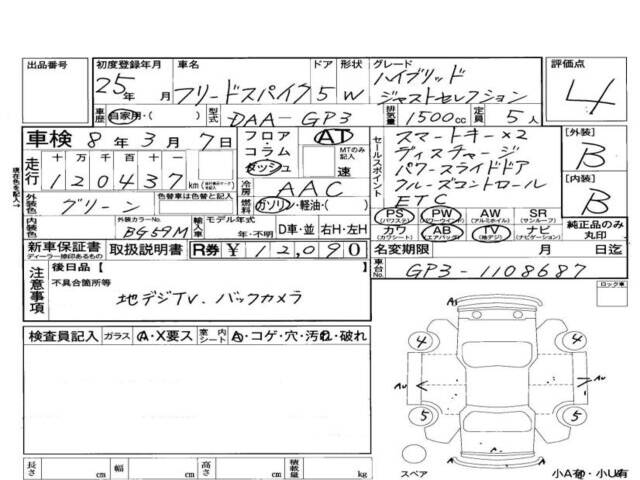 出品番号 初度登録年月 車名 ドア 形状 グレード 評価点
25年 月 フリードスパイク 5 W ハイブリッド
ジャストセレクション 4
車歴 自家用・( ) 型式 DAA-GP3 排気量 1500cc 定員 5人
車検 8年3月7日 フロア・コラム ダッシュ AT MTのみ記入 速
セールスポイント スマートキー×2
ディスチャージ
パワースライドドア
クルーズコントロール
ETC
[外装] B
[内装] B
現在色を記入→
走行 十万千百十一
120437 km
冷房 AAC
燃料 ガソリン・軽油・( )
外装色 グリーン 色替車は色替と記入
内装色 外装カラーNo. BG59M 輸入車 モデル年式 年・不明 D車・並 右H・左H
PS (パワステ) PW (パワーウインド) AW (アルミホイル) SR (サンルーフ)
カワ (カワシート) AB (エアバッグ) TV (地デジ) ナビ (ナビゲーション)
純正品のみ丸印
新車保証書 ディーラー捺印あるもの 取扱説明書 R券 ¥12,090
名変期限 月 日迄
車台No. GP3-1108687
注意事項 後日品【 】
不具合箇所等
地デジTV、バックカメラ
ロック車
検査員記入 ガラス A・X要ス 室内シート A・コゲ・穴・汚れ・破れ
A1
4 4
AU AU
5 5
A
スペア
長さ cm 幅 cm 高さ cm 積載量 kg
小A有・小U有